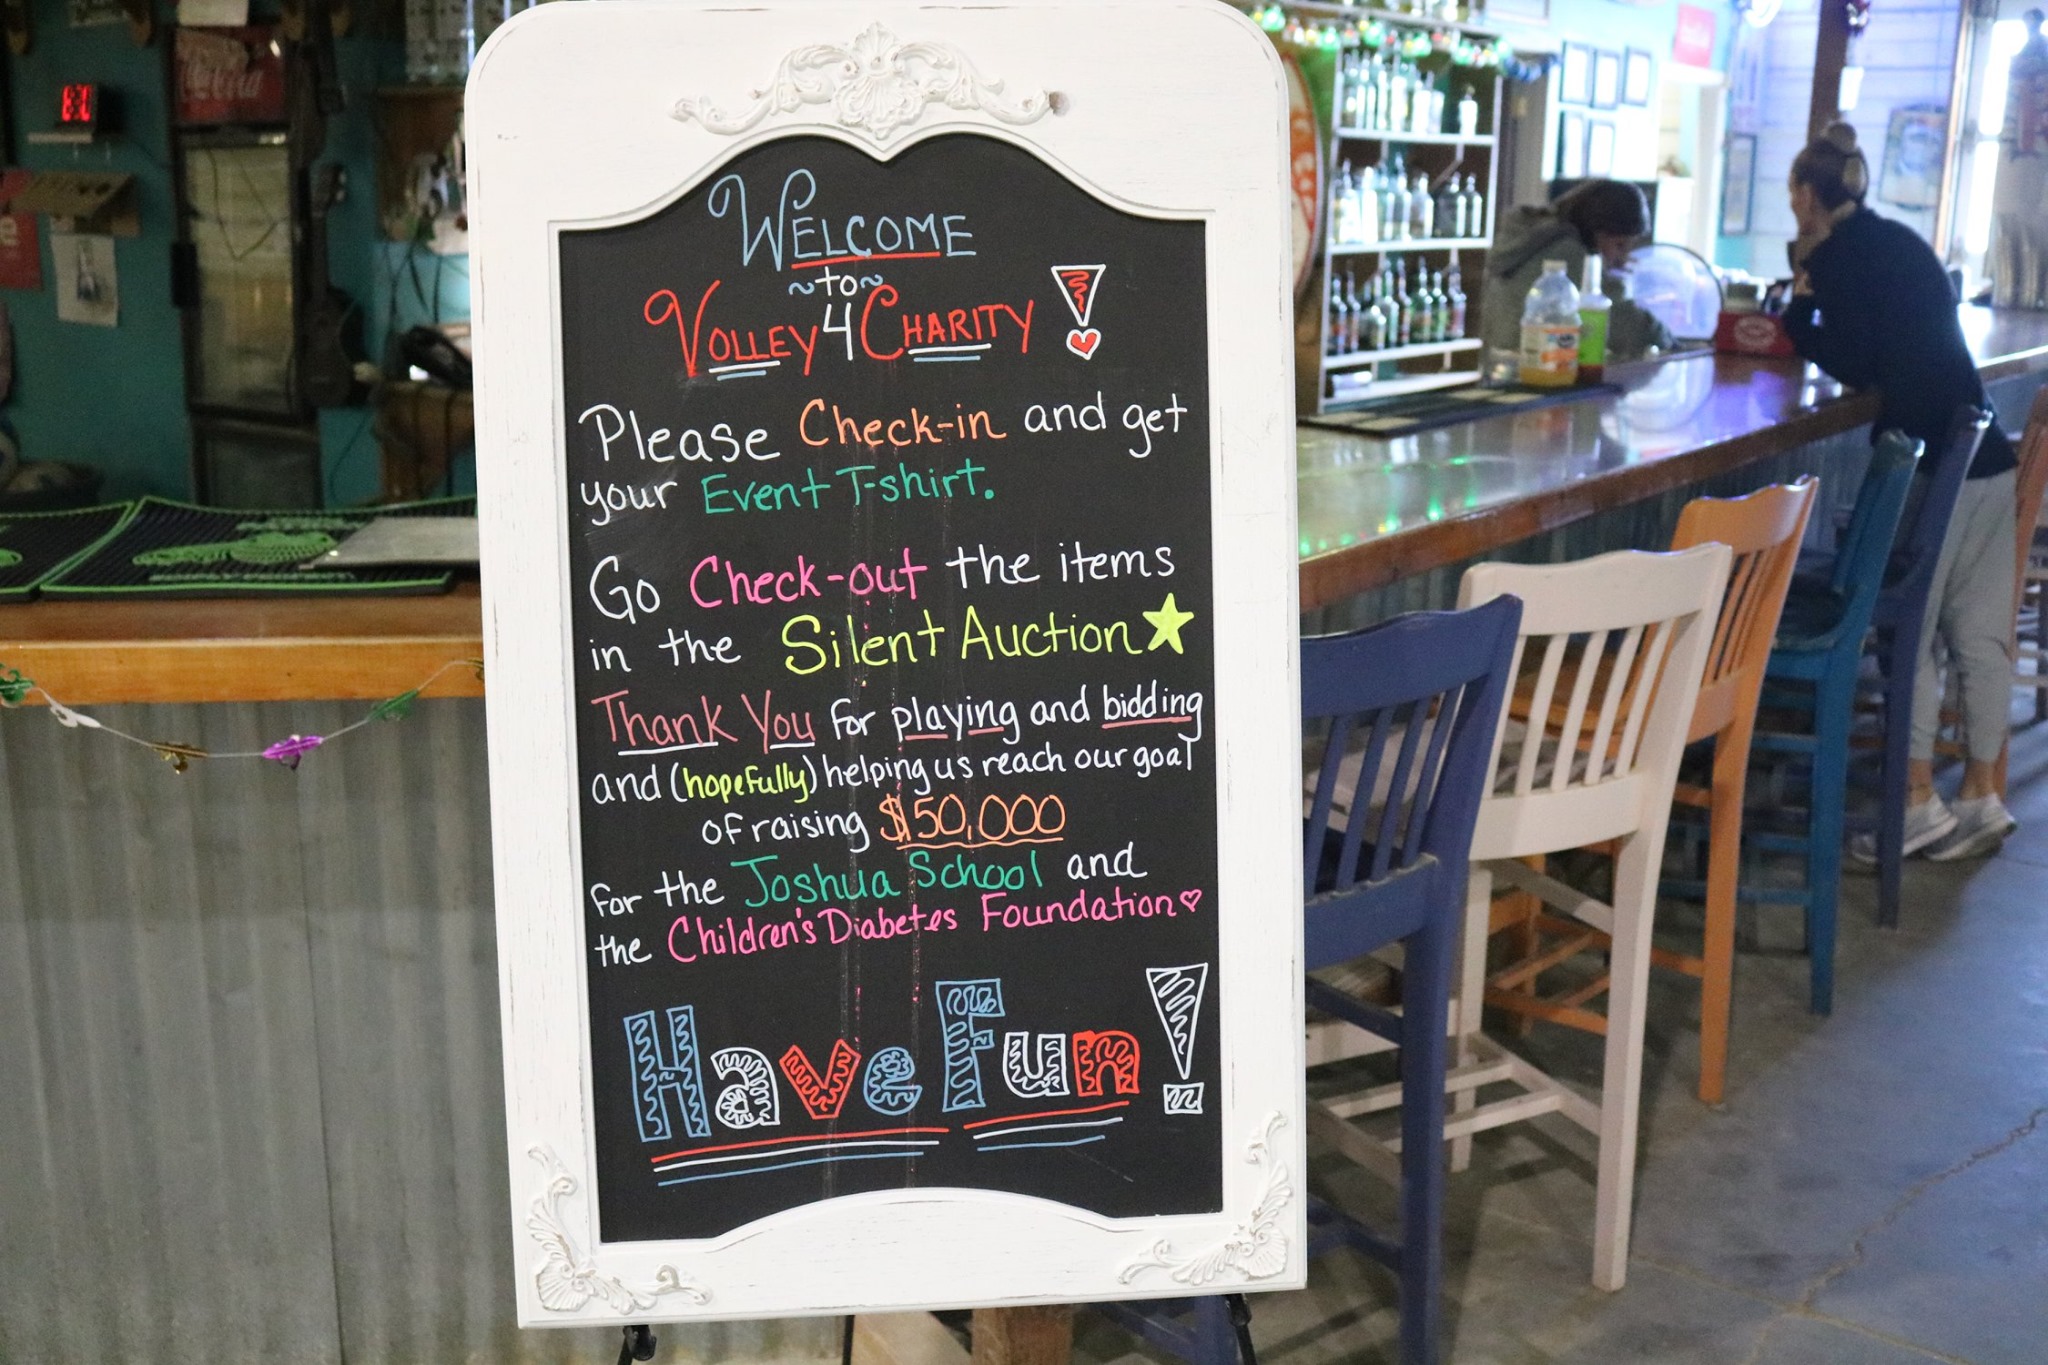 WELCOME
~to~
VOLLEY 4 CHARITY!
Please Check-in and get
your Event T-shirt.
Go Check-out the items
in the Silent Auction
Thank You for playing and bidding
and (hopefully) helping us reach our goal
of raising $50,000
for the Joshua School and
the Children's Diabetes Foundation
Have Fun!
Coca-Cola